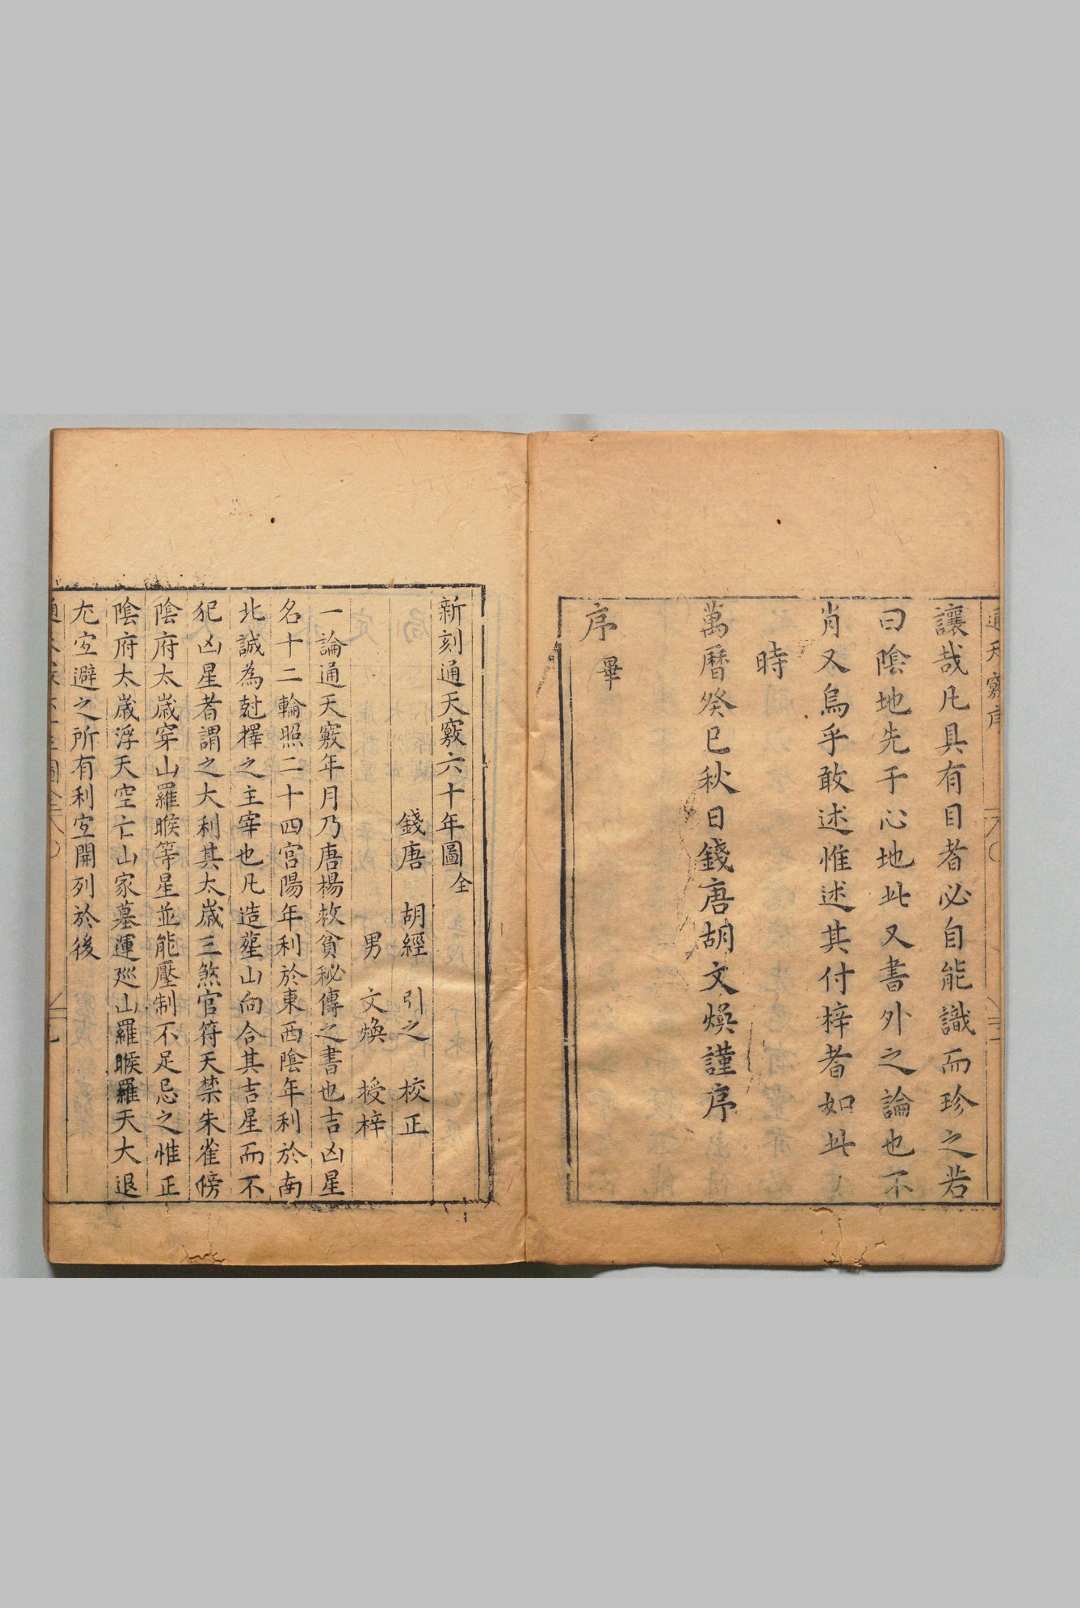 讓哉凡具有目者必自能識而珍之若
曰陰地先于心地此又書外之論也不
肖又烏乎敢述惟述其付梓者如此
時
萬曆癸巳秋日錢唐胡文煥謹序
序畢
新刻通天竅六十年圖全
錢唐 胡經 引之 校正
男 文煥 授梓
一論通天竅年月乃唐楊救貧秘傳之書也吉凶星
名十二輪照二十四宮陽年利於東西陰年利於南
北誠為尅擇之主宰也凡造塟山向合其吉星而不
犯凶星者謂之大利其太歲三煞官符天禁朱雀傍
陰府太歲穿山羅睺等星並能壓制不足忌之惟正
陰府太歲浮天空亡山家墓運廵山羅睺羅天大退
尢宜避之所有利宜開列於後